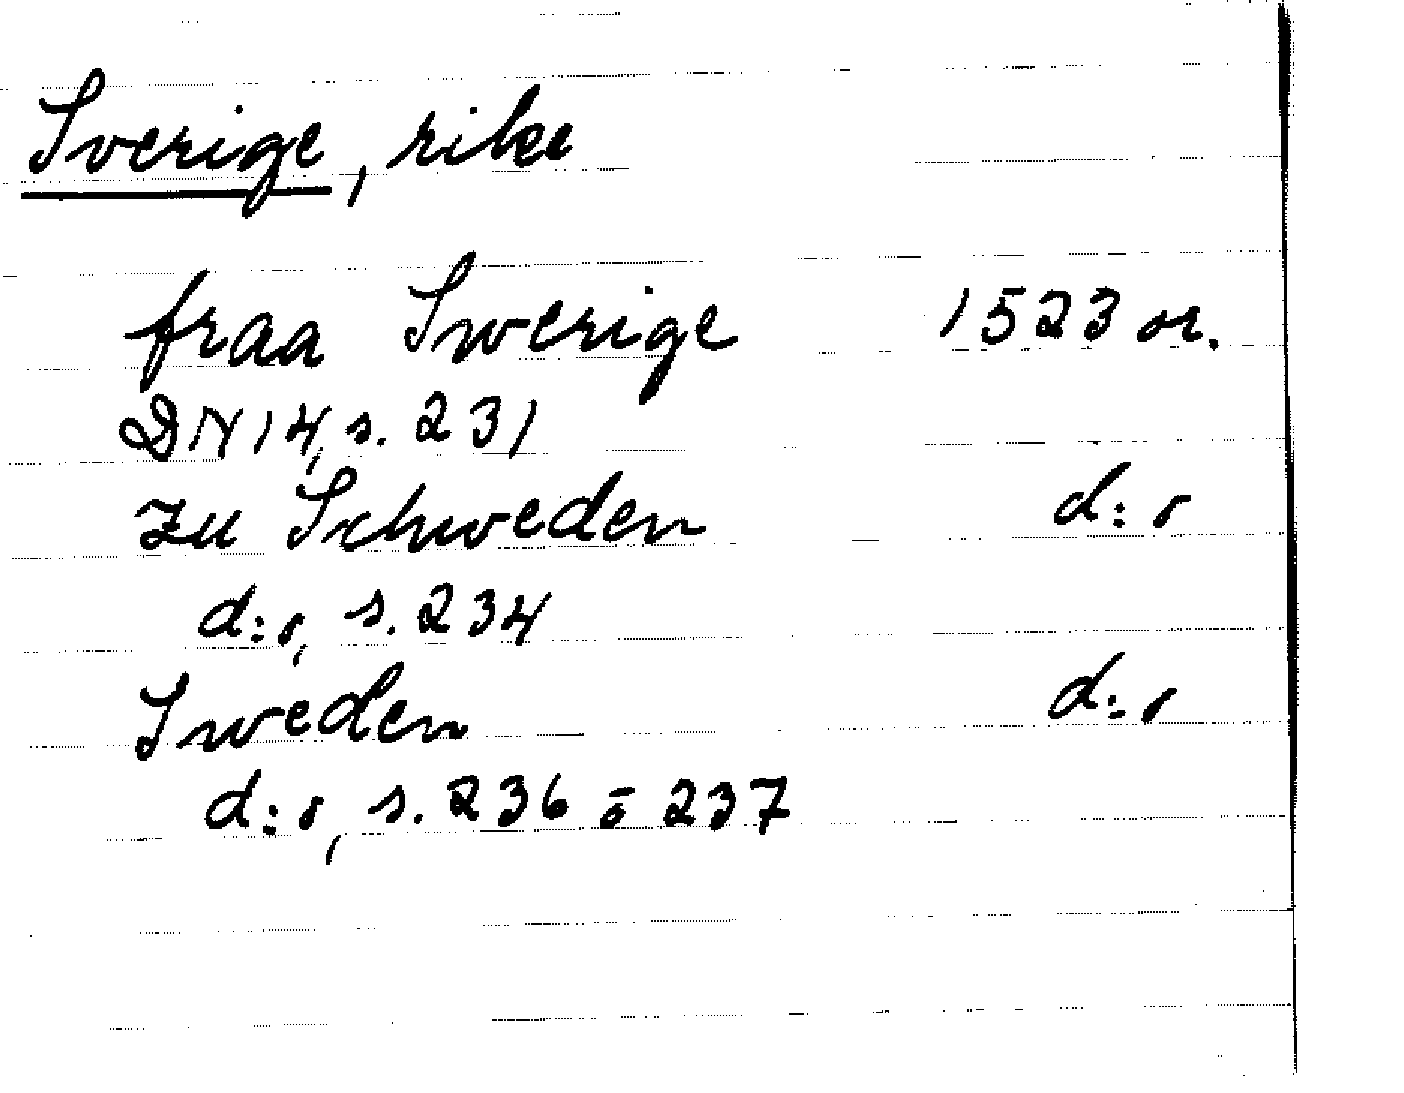 Sverige, rike
fraa Swerige 1523 or.
DN 14, s. 231
zu Schweden d:o
d:o, s. 234
Sweden d:o
d:o, s. 236 o 237